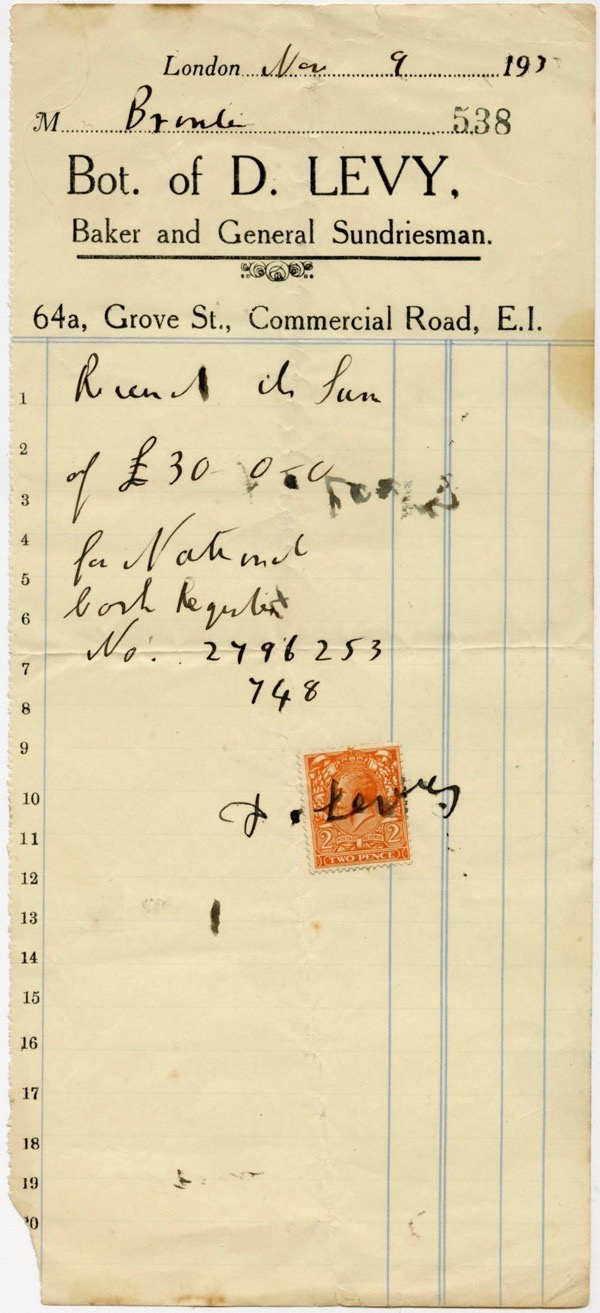 London Nov 9 193
M 538
Bot. of D. LEVY,
Baker and General Sundriesman.
64a, Grove St., Commercial Road, E.I.
1 Received the Sum
2
of £30-0-0
3
4
for National
5
Cash Register
6
No. 2796253
7
748
8
9
10
D. Levy
2 POSTAGE REVENUE 2
TWO PENCE
11
12
13
14
15
16
17
18
19
20